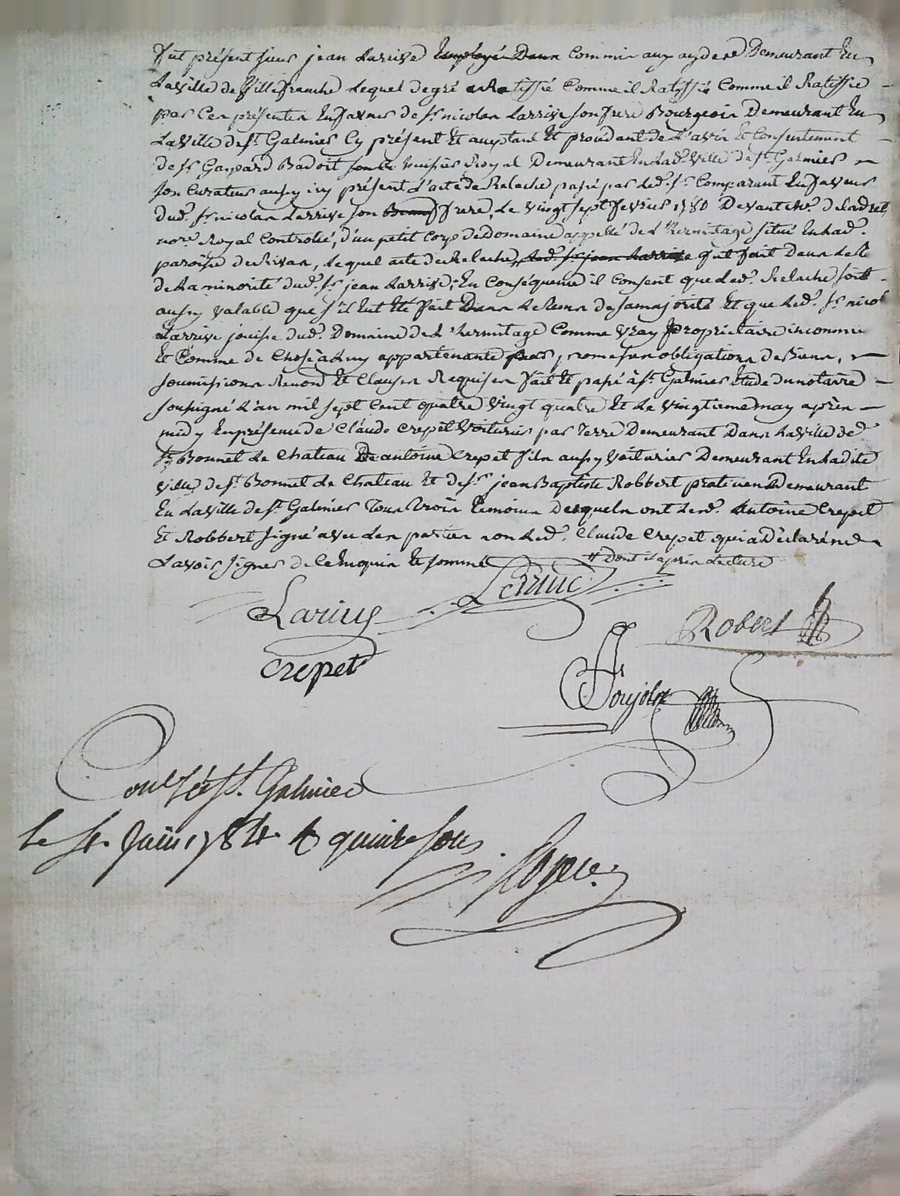 fut présent sieur jean Larrive Employé Dans Commis aux aydes Demeurant En
La ville de villefranche Lequel de gré a Ratiffié Comme il Ratiffie Comme il Ratiffie
par Ces présentes En faveur de sr. nicolas Larrive son frere Bourgeois Demeurant En
La ville de st. Galmier Cy présent Et acceptant Et procédant de L'avis Et Consentement
de sr. Gaspard Badoit huissier Royal Demeurant En lad. ville de st. Galmier
son Curateur aussy icy présent L'acte de Relache passé par led. sr. Comparant En faveur
dud. sr. nicolas Larrive son frere, Le vingt sept fevrier 1780 Devant me.
nore. Royal Controllé, d'un petit Corps de Domaine appellé de L'hermitage situé En lad.
paroisse de Rivas, Lequel acte de Relache, Led. sr. jean Larrive qui fait Dans le
de La minorité dud. sr. jean Larrive; En Conséquence il Consent que led. Relache soit
aussy valable que s'il Eut été fait Dans Le tems de sa majorité Et que led. sr. nicolas
Larrive jouisse dud. Domaine de L'hermitage Comme vray propriétaire incommu
Et Comme de Chose à luy appartenante, promesses obligations de Biens,
soumissions Renon. Et Clauses Requises fait Et passé à st. Galmier Etude du notaire
soussigné L'an mil sept Cent quatre vingt quatre Et Le vingtieme may après
midy En présence de Claude Crepet voiturier par terre Demeurant Dans La ville de
st. Bonnet Le Chateau Antoine Crepet fils aussy voiturier Demeurant En la dite
ville de st. Bonnet Le Chateau Et de sr. jean Baptiste Robbert praticien Demeurant
En La ville de st. Galmier Tous trois temoins Desquels ont led. Antoine Crepet
Et Robbert signé avec Les parties non led. Claude Crepet qui a déclaré ne
savoir signer de Ce Enquis Et sommé # Dont après Lecture
Larive Larrive
Robert
Crepet
Coulé à St. Galmier
le Juin 1784 quinze sous